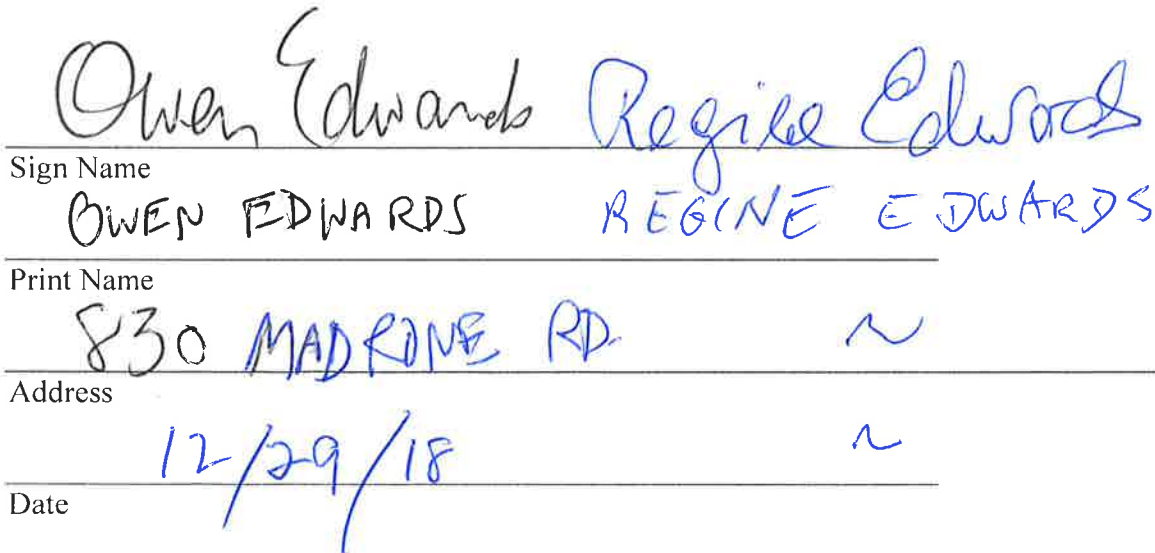 Owen Edwards Regine Edwards
Sign Name
OWEN EDWARDS REGINE EDWARDS
Print Name
830 MADRONE RD. ~
Address
12/29/18 ~
Date